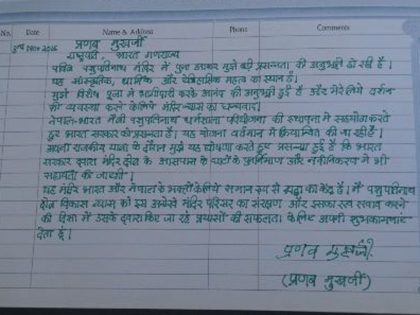 No.
Date
Name & Address
Phone
Comments
3rd Nov 2016
प्रणब मुखर्जी
राष्ट्रपति, भारत गणराज्य
पवित्र पशुपतिनाथ मंदिर में पुनः आकर मुझे बड़ी प्रसन्नता की अनुभूति हो रही है।
यह सांस्कृतिक, धार्मिक और ऐतिहासिक महत्व का स्थान है।
मुझे विशेष पूजा में भागीदारी करके आनंद की अनुभूति हुई है और मेरे लिये दर्शन
की व्यवस्था करने के लिये मंदिर न्यास का धन्यवाद।
नेपाल-भारत मैत्री पशुपतिनाथ धर्मशाला परियोजना की स्थापना में सहयोग करते
हुए भारत सरकार को प्रसन्नता है। यह योजना वर्तमान में क्रियान्वित की जा रही है।
अपनी राजकीय यात्रा के दौरान मुझे यह घोषणा करते हुए प्रसन्नता हुई है कि भारत
सरकार द्वारा मंदिर क्षेत्र के आसपास के घाटों के पुनर्निर्माण और नवीनीकरण में भी
सहायता की जाएगी।
यह मंदिर भारत और नेपाल के भक्तों के लिये समान रूप से श्रद्धा का केंद्र है। मैं पशुपतिनाथ
क्षेत्र विकास न्यास को इस अनोखे मंदिर परिसर का संरक्षण और इसका रख रखाव करने
की दिशा में उसके द्वारा किए जा रहे प्रयासों की सफलता के लिए अपनी शुभकामनाएं
देता हूं।
प्रणब मुखर्जी
(प्रणब मुखर्जी)